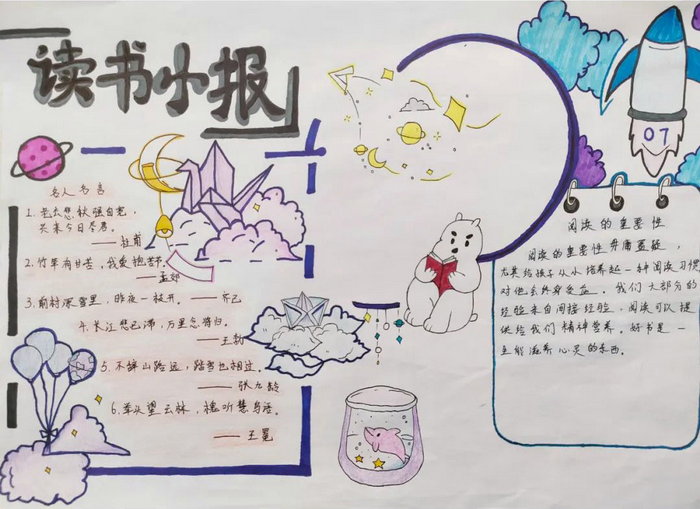 读书小报
名人名言
1. 老去悲秋强自宽,
兴来今日尽君。
——杜甫
2. 竹竿有甘苦,我爱抱苦节。
——孟郊
3. 前村深雪里,昨夜一枝开。——齐己
4. 长江悲已滞,万里念将归。
——王勃
5. 不辞山路远,踏雪也相过。
——张九龄
6. 举头望云林,愧听慧鸟语。
——王冕
07
阅读的重要性
阅读的重要性毋庸置疑,
尤其给孩子从小培养起一种阅读习惯
对他会终身受益。我们大部分的
经验来自间接经验,阅读可以提
供给我们精神营养。好书是一
直能滋养心灵的东西。